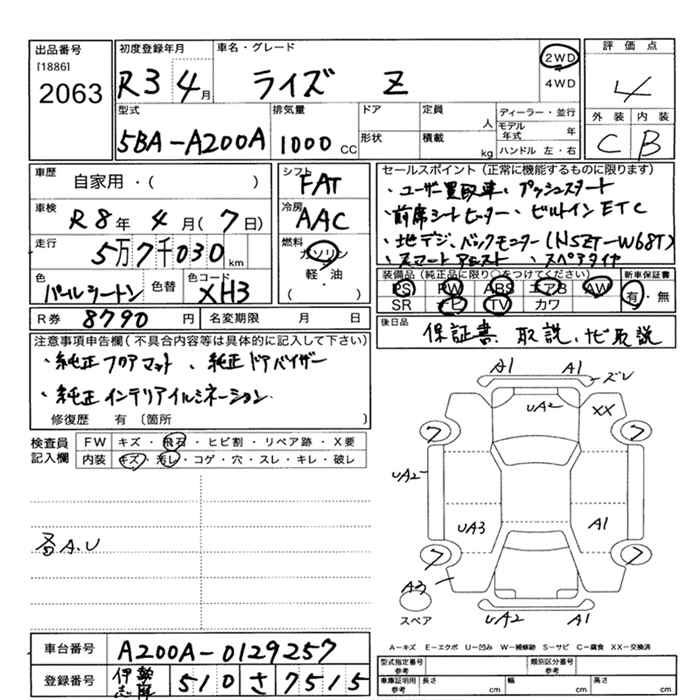 出品番号
[1886]
2063
初度登録年月
R3 4月
車名・グレード
ライズ Z
2WD
4WD
評価点
4
外装 内装
C B
型式
5BA-A200A
排気量
1000 CC
ドア
形状
定員 人
積載 kg
ディーラー・並行
モデル年式 年
ハンドル 左・右
車歴
自家用・( )
車検
R8年 4月(7日)
走行
5万7千030 km
色
パールシートン
色替
色コード
XH3
シフト
FAT
冷房
AAC
燃料
ガソリン
軽・油
( )
セールスポイント(正常に機能するものに限ります)
・ユーザー買取車、プッシュスタート
・前席シートヒーター・ビルトインETC
・地デジ、バックモニター(NSZT-W68T)
・スマートアシスト、・スペアタイヤ
装備品(純正品に限り○をつけてください)
新車保証書
PS PW ABS エアB AW
SR ナビ TV カワ
有・無
R券 8790円
名変期限 月 日
後日品
保証書、取説、ナビ取説
注意事項申告欄(不具合内容等は具体的に記入して下さい)
・純正フロアマット、・純正ドアバイザー
・純正インテリアイルミネーション
修復歴 有 〔箇所 〕
検査員記入欄
FW キズ・飛石・ヒビ割・リペア跡・X要
内装 キズ・汚レ・コゲ・穴・スレ・キレ・破レ
各A.U
A1 A1 ズレ
UA2 XX
7 7
UA2
UA3 A1
7 7
A3
スペア
UA2 A1
A-キズ E-エクボ U-凹み W-補修跡 S-サビ C-腐食 XX-交換済
車台番号
A200A-0129257
登録番号
510 さ 7515
型式指定番号 参考
類別区分番号 参考
車庫証明用 参考
長さ cm
幅 cm
高さ cm